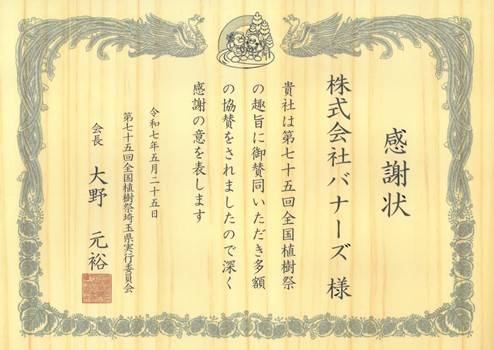 感謝状
株式会社バナーズ 様
貴社は第七十五回全国植樹祭
の趣旨に御賛同いただき多額
の協賛をされましたので深く
感謝の意を表します
令和七年五月二十五日
第七十五回全国植樹祭埼玉県実行委員会
会長 大野 元裕